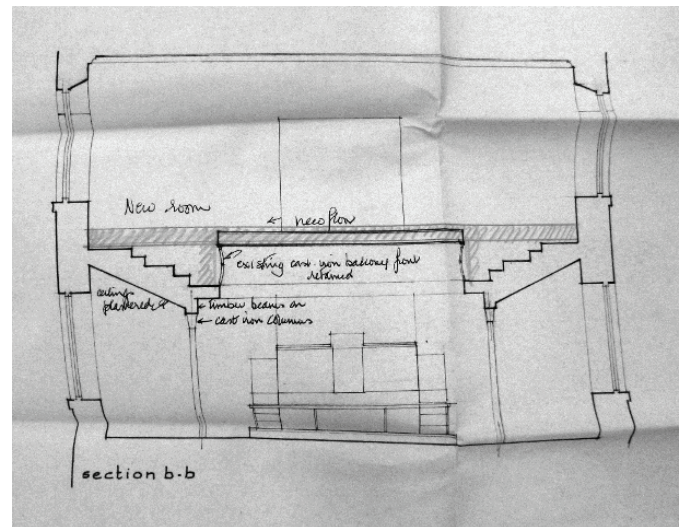 New room
← new floor
existing cast-iron balcony front
retained
ceiling
plastered
← timber beams on
← cast iron columns
section b-b